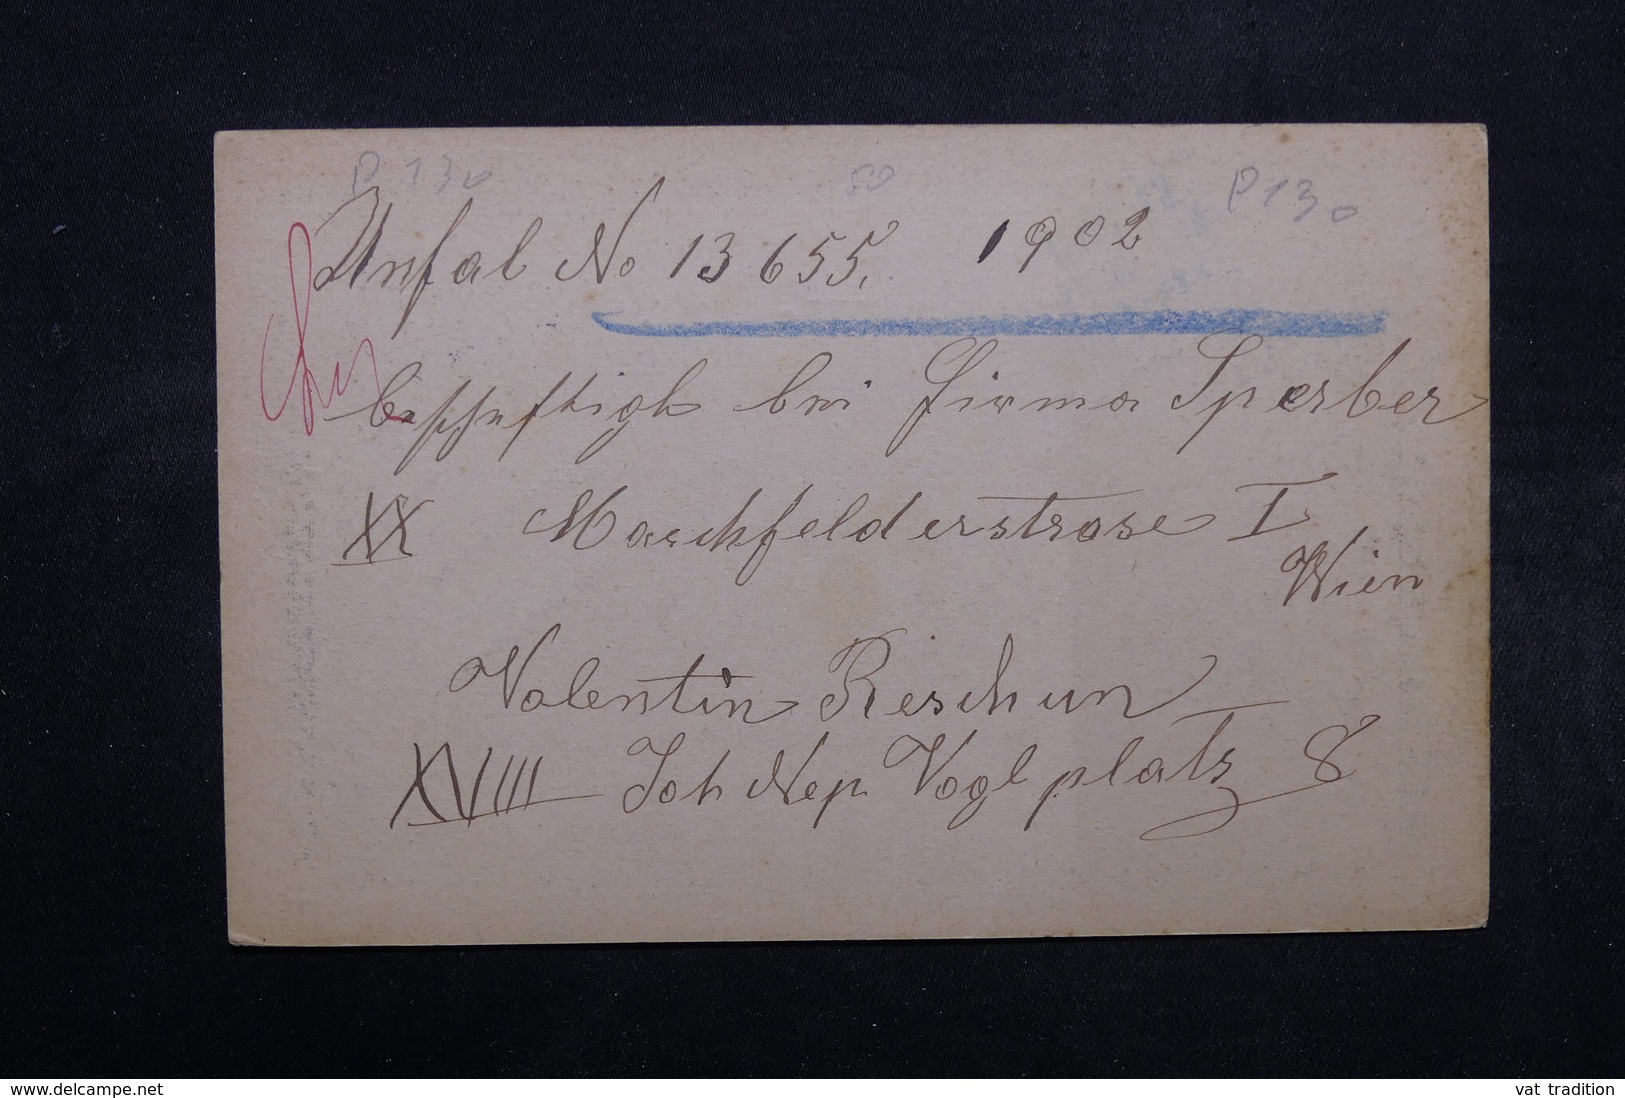 P 130 50 P 130
Unfal No 13655. 1902
bescheftigh bei Firma Sperber
XX Marchfelderstrase I
Wien
Valentin Reschun
XVIII Joh Nep Voglplatz 8
www.delcampe.net
vat tradition